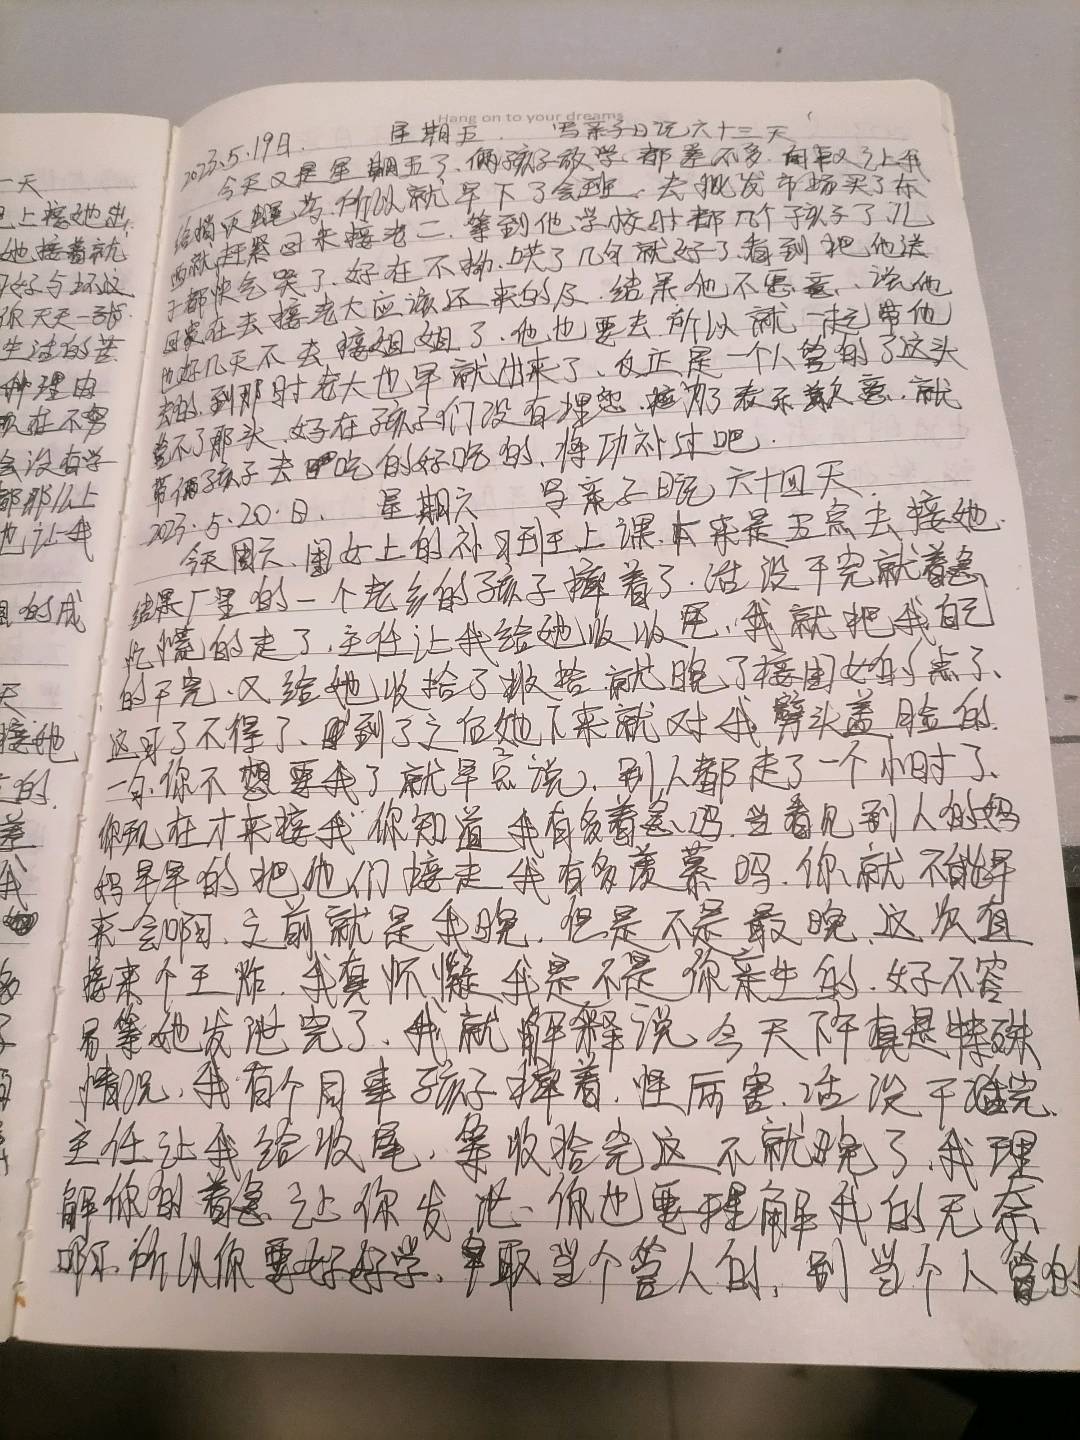 Hang on to your dreams
2023.5.19日. 星期五. 写亲子日记六十三天
今天又是星期五了、俩孩子放学都差不多.
给捎灭蝇芳.所以就早下了会班、去批发市场买了东
西就赶紧回来接老二、等到他学校时都几个孩子了儿
子都快气哭了、好在不拗.哄了几句就好了.看到把他送
回家在去接老大应该还来的及.结果他不愿意、说他
也好几天不去接姐姐了.他也要去.所以就一起带他
去的.到那时老大也早就出来了、反正是一个人管的了这头
管不了那头.好在孩子们没有埋怨.为了表示歉意、就
带俩孩子去吃的好吃的、将功补过吧.
2023.5.20.日、 星期六 写亲子日记六十四天.
今天周六、闺女上的补习班上课.本来是五点去接她.
结果厂里的一个老乡的孩子摔着了.活没干完就着急
忙慌的走了、主任让我给她收收尾、我就把我自己
的干完、又给她收拾了收拾就晚了接闺女的点了、
这可了不得了、到了之后她下来就对我劈头盖脸的
一句.你不想要我了就早点说、别人都走了一个小时了、
你现在才来接我你知道我有多着急吗.当看见别人的妈
妈早早的把他们接走我有多羡慕吗.你就不能早
来一会啊、之前就是我晚.但是不是最晚.这次直
接来个王炸.我真怀疑我是不是你亲生的.好不容
易等她发泄完了、我就解释说、今天下午真是特殊
情况、我有个同事孩子摔着.怪厉害.活没干完.
主任让我给收尾、等收拾完这不就晚了、我理
解你的着急让你发泄、你也要理解我的无奈
啊.所以你要好好学、争取当个管人的、别当个人管的
一天
上接她
她接着就
好与坏这
你天天一张
生活的苦
种理由
现在不努
会没有学
都那么上
也让我
的成
天
接她
的.
差
我